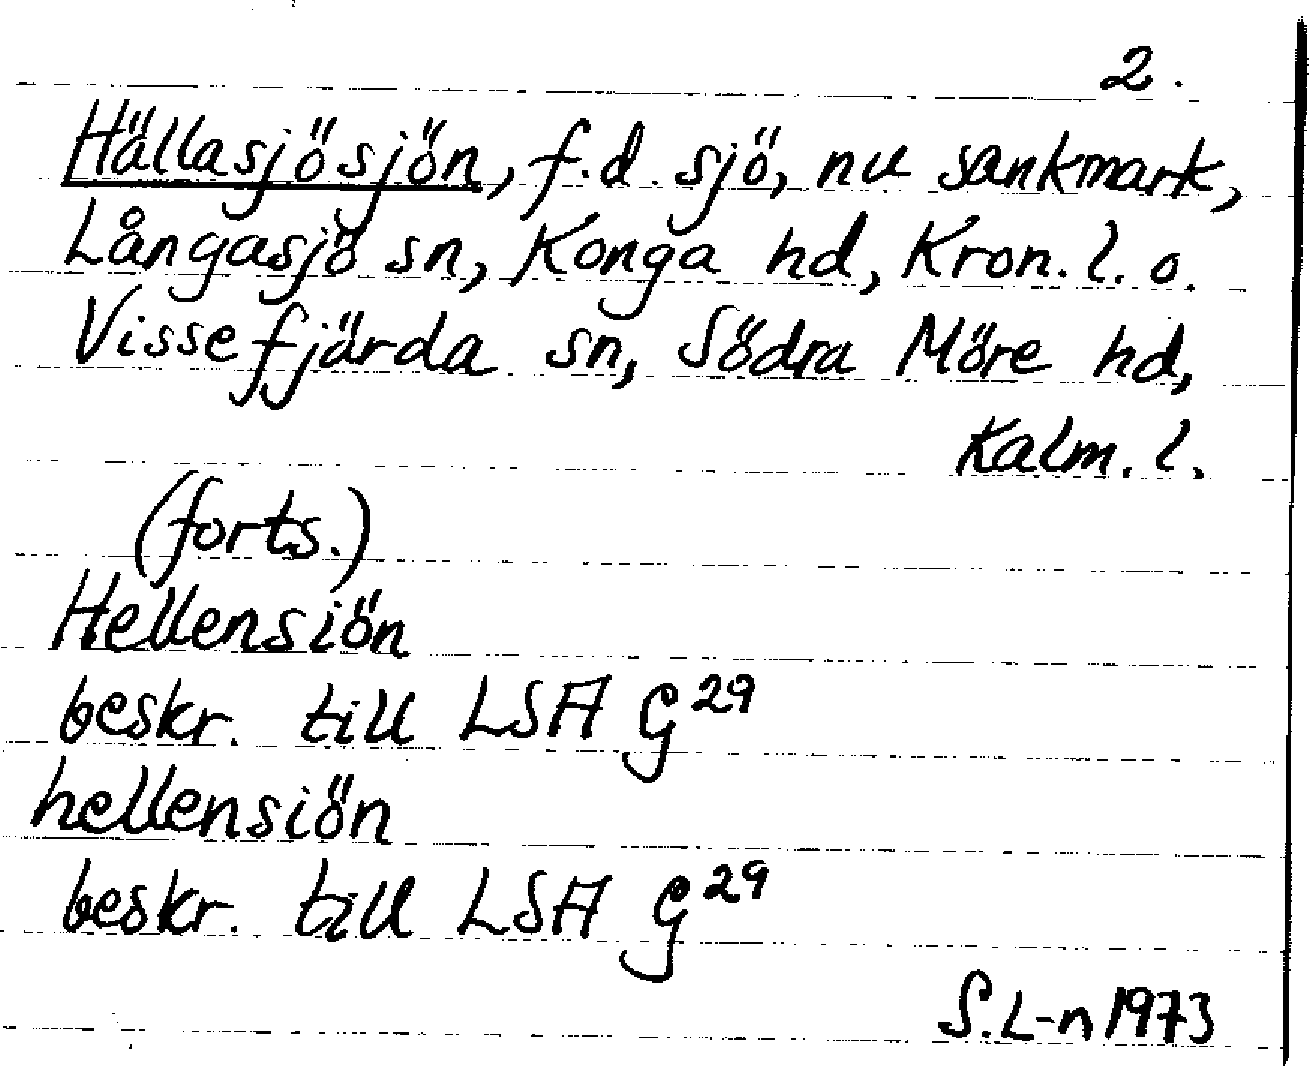 2.
Hällasjösjön, f.d. sjö, nu sankmark,
Långasjö sn, Konga hd, Kron. l. o.
Vissefjärda sn, Södra Möre hd,
Kalm. l.
(forts.)
Hellensiön
beskr. till LSA G 29
hellensiön
beskr. till LSA G 29
S. L-n 1973